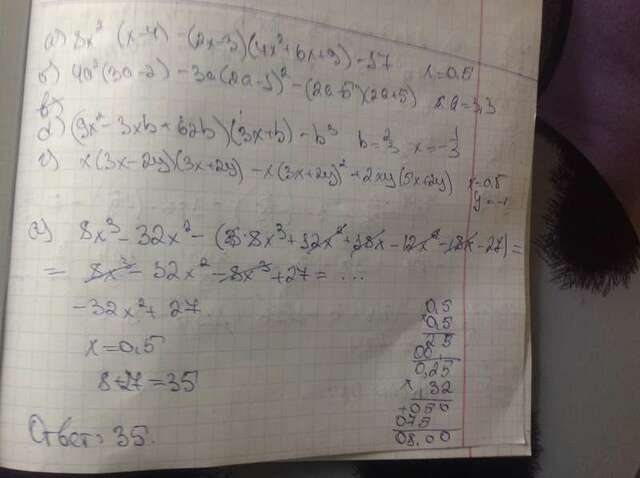 а) 8x² (x-4) - (2x-3)(4x²+6x+9) - 17 x=0,5
б) 4a²(3a-2) - 3a(2a-1)² - (2a-5)(2a+5) a=3,3
в)
d) (9x² - 3xb + b2b)(3x+b) - b³ b=2/3 x=-1/3
г) x(3x-2y)(3x+2y) - x(3x+2y)² + 2xy(5x+2y) x=0,5
y=-1
а) 8x³ - 32x² - (8x³ + 12x² + 18x - 12x² - 18x - 27) =
= 8x³ - 32x² - 8x³ + 27 = ...
-32x² + 27
x = 0,5
8+27 = 35
Ответ: 35.
0,5
0,5
25
00
0,25
x 32
+050
075
08,00